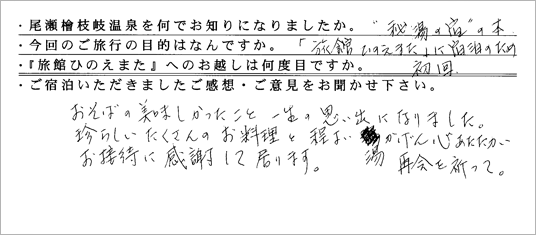 ・尾瀬檜枝岐温泉を何でお知りになりましたか。 "秘湯の宿"の本
・今回のご旅行の目的はなんですか。 「旅館ひのえまた」に宿泊のため
・『旅館ひのえまた』へのお越しは何度目ですか。 初回
・ご宿泊いただきましたご感想・ご意見をお聞かせ下さい。
おそばの美味しかったこと一生の思い出になりました。
珍らしいたくさんのお料理と程よい湯かげん心あたたかい
お接待に感謝して居ります。 再会を祈って。